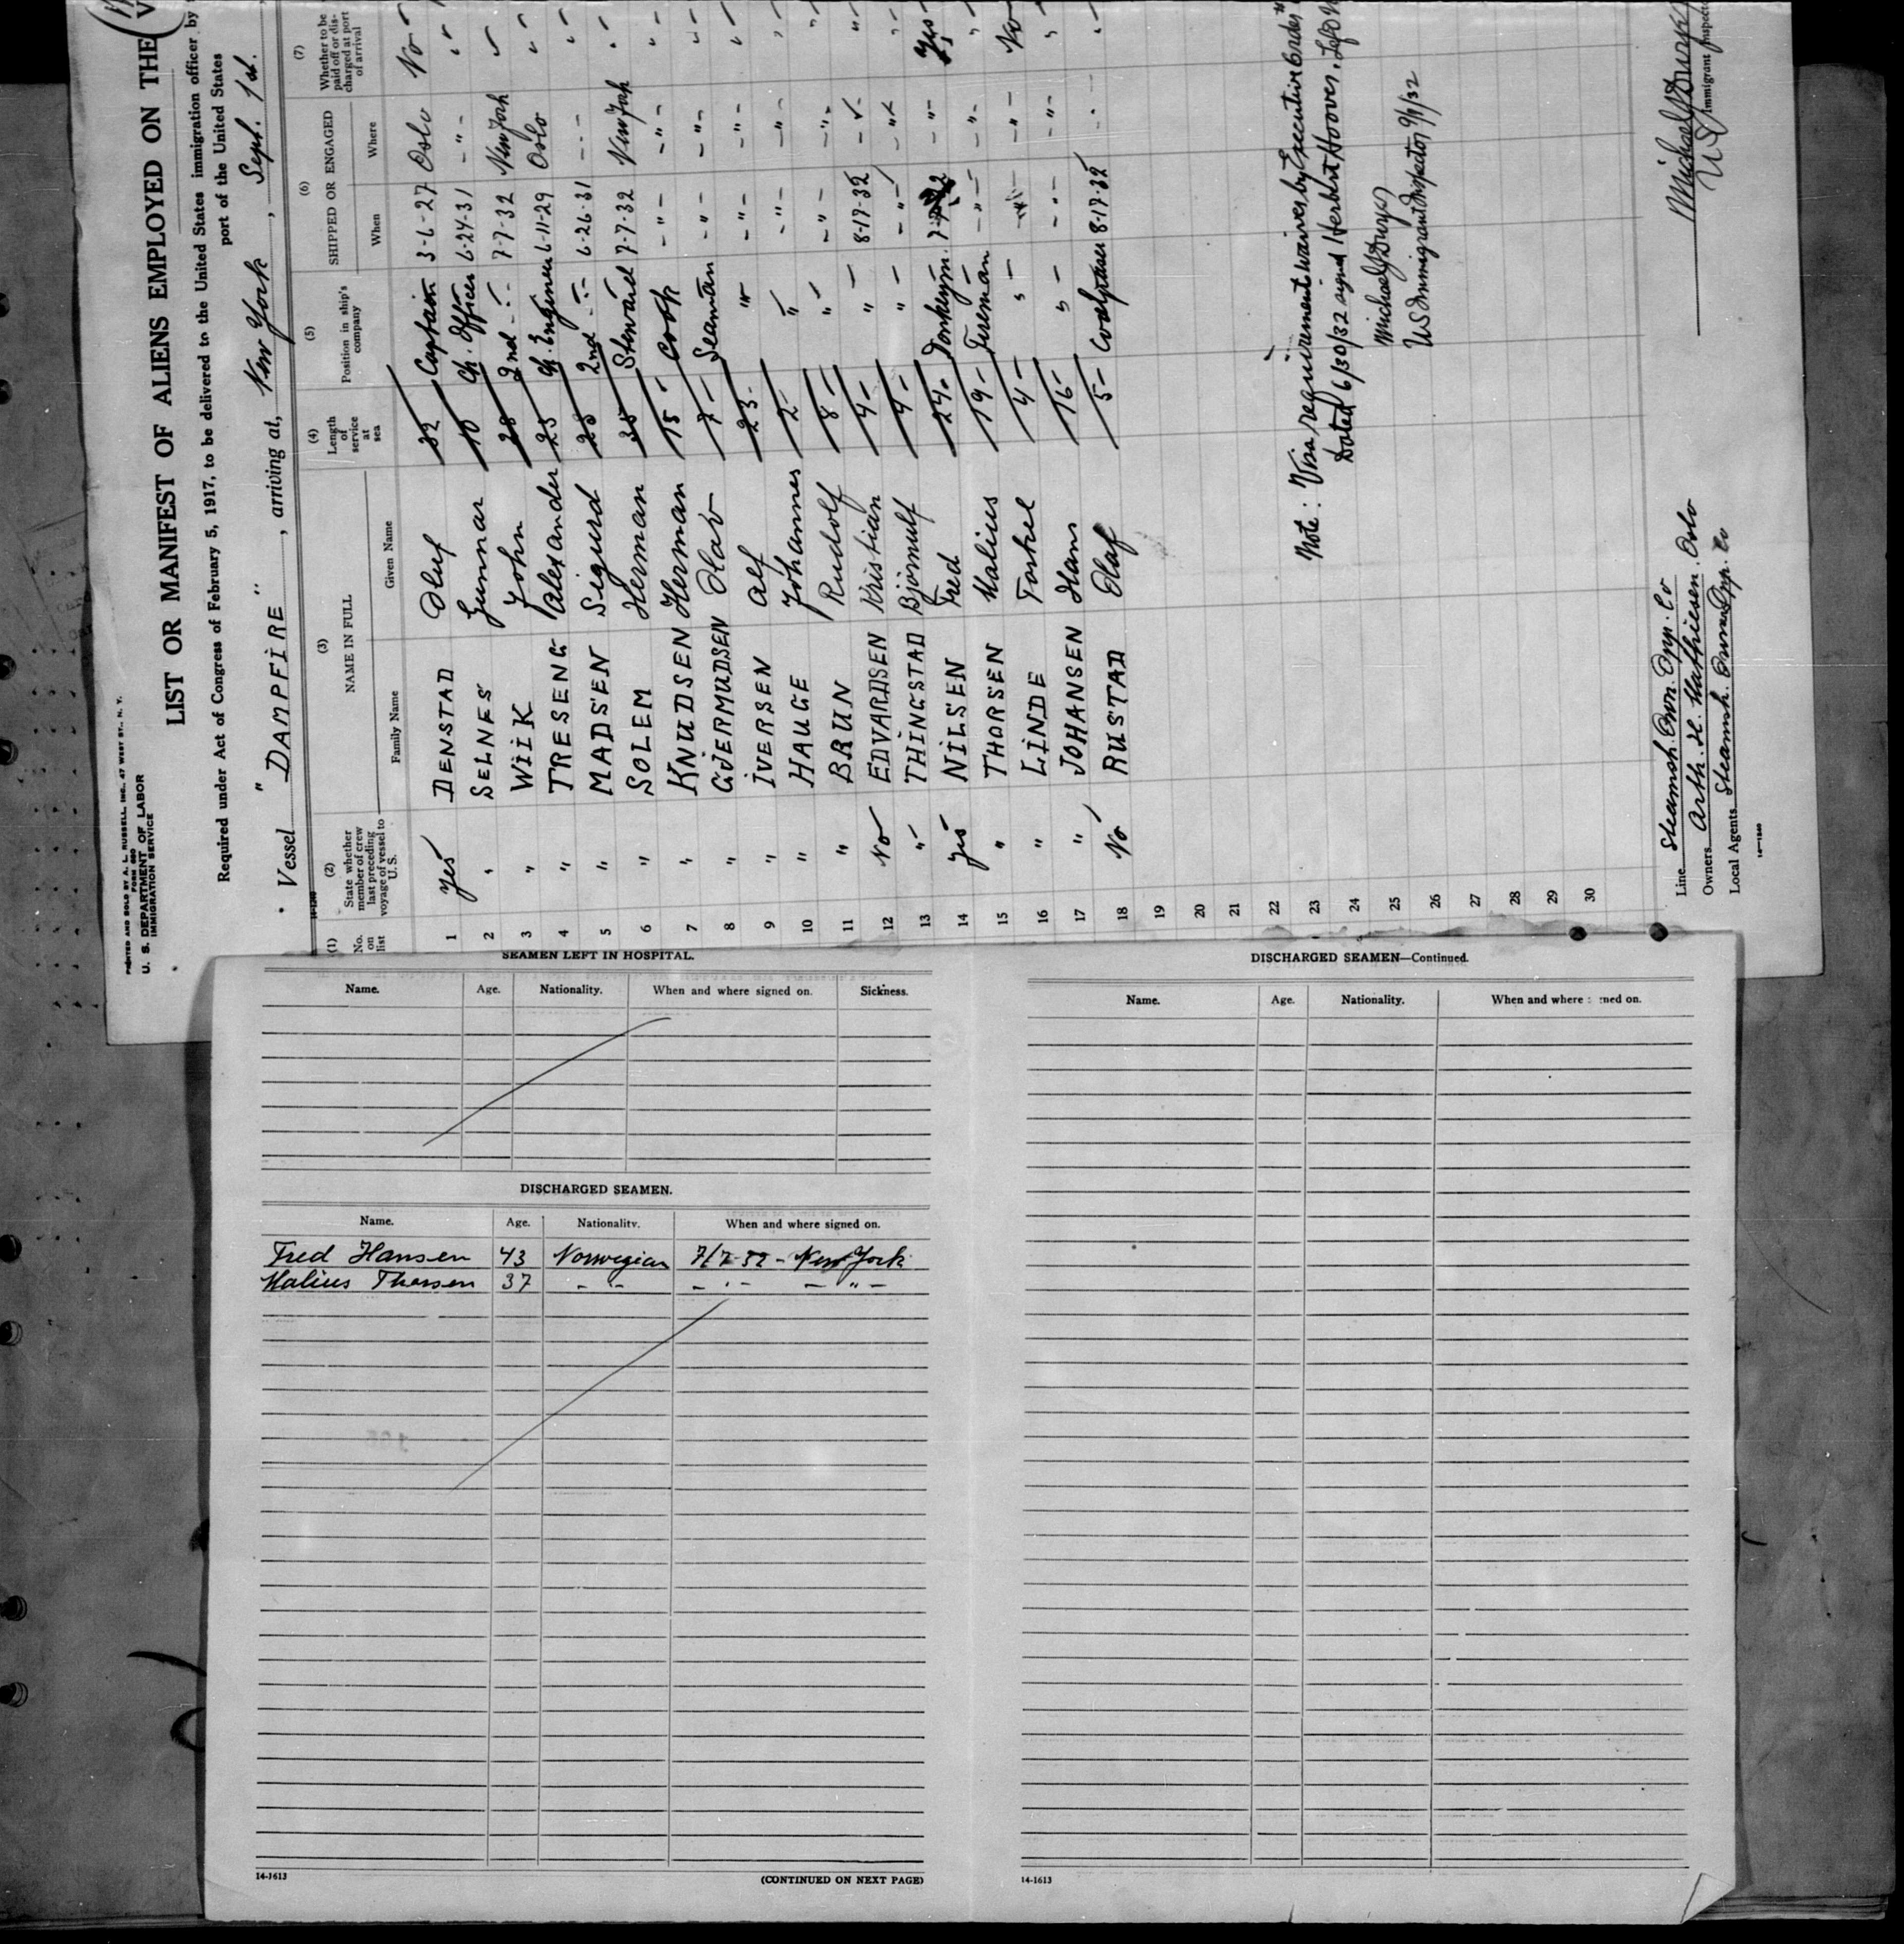 PRINTED AND SOLD BY A. L. RUSSELL, INC., 47 WEST ST., N. Y.
FORM 680
U. S. DEPARTMENT OF LABOR
IMMIGRATION SERVICE
LIST OR MANIFEST OF ALIENS EMPLOYED ON THE
Required under Act of Congress of February 5, 1917, to be delivered to the United States immigration officer by
port of the United States
Vessel "DAMPFIRE", arriving at, New York, Sept. 1st.
(1) (2) (3) (4) (5) (6) (7)
No. on list State whether member of crew last preceding voyage of vessel to U. S. NAME IN FULL Family Name Given Name Length of service at sea Position in ship's company SHIPPED OR ENGAGED When Where Whether to be paid off or discharged at port of arrival
1 Yes DENSTAD Oluf 32 Captain 3-6-27 Oslo No -
2 " SELNES Gunnar 10 Ch. Officer 6-24-31 - " - " -
3 " WIIK John 28 2nd - " - 7-7-32 New York
4 " TRESENG Alexander 25 Ch. Engineer 6-11-29 Oslo " -
5 " MADSEN Sigurd 2nd - " - 6-26-31 - " - " -
6 " SOLEM Herman 35 Steward 7-7-32 New York " -
7 " KNUDSEN Herman 15 - Cook - " - - " - " -
8 " GJERMUDSEN Olav 7 - Seaman - " - - " - " -
9 " IVERSEN Alf 23 - " - " - - " - " -
10 " HAUGE Johannes 2 - " - - " - - " - " -
11 " BRUN Rudolf 8 - " - - " - - " - " -
12 No EDVARDSEN Kristian 4 - " - 8-17-32 - " - " -
13 " THINGSTAD Bjørnulf 4 - " - - " - - " - " -
14 Yes NILSEN Fred 24 - Donkeym. - " - Yes -
15 " THORSEN Malius 19 - Fireman - " - - " - " -
16 " LINDE Torkel 4 - " - - " - - " - No -
17 " JOHANSEN Hans 16 - " - - " - - " - " -
18 No RUSTAD Olaf 5 - 8-17-32 - " - " -
19
20
21
22
23
24
25
26
27
28
29
30
Note: Visa requirement waived by Executive Order
Dated 6/30/32 signed Herbert Hoover.
U S Immigrant Inspector 9/1/32
Line Steamsh. Own. Opp. Co
Owners Arth. H. Mathiesen. Oslo
Local Agents Steamsh. Opp. Co
14-1240
Immigrant Inspector
SEAMEN LEFT IN HOSPITAL.
Name. Age. Nationality. When and where signed on. Sickness.
DISCHARGED SEAMEN.
Name. Age. Nationality. When and where signed on.
Fred Hansen 43 Norwegian 7/7-32 - New York
Malius Thorsen 37 - " - - " - - " -
14-1613
(CONTINUED ON NEXT PAGE)
DISCHARGED SEAMEN—Continued.
Name. Age. Nationality. When and where signed on.
14-1613